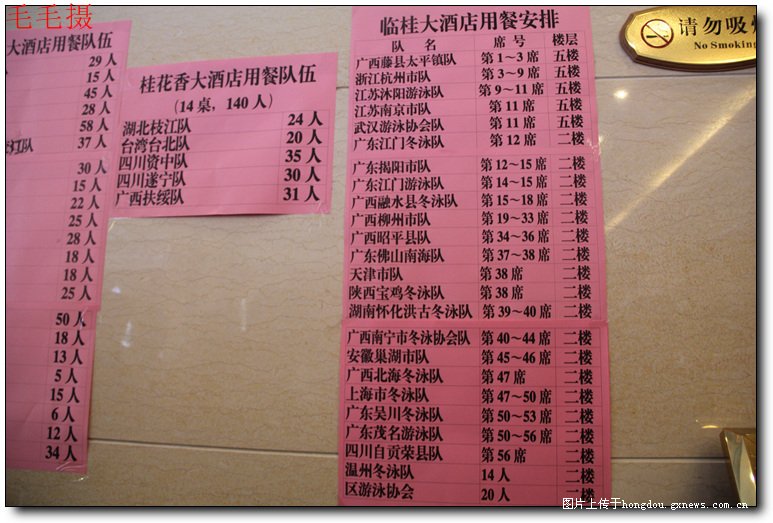 毛毛摄
大酒店用餐队伍
29 人
15 人
45 人
28 人
58 人
37 人
30 人
15 人
22 人
25 人
28 人
18 人
18 人
25 人
50 人
18 人
13 人
5 人
15 人
6 人
12 人
34 人
桂花香大酒店用餐队伍
(14 桌，140 人)
湖北枝江队 24 人
台湾台北队 20 人
四川资中队 35 人
四川遂宁队 30 人
广西扶绥队 31 人
临桂大酒店用餐安排
队 名 席 号 楼层
广西藤县太平镇队 第 1～3 席 五楼
浙江杭州市队 第 3～9 席 五楼
江苏沐阳游泳队 第 9～11 席 五楼
江苏南京市队 第 11 席 五楼
武汉游泳协会队 第 11 席 五楼
广东江门冬泳队 第 12 席 二楼
广东揭阳市队 第 12～15 席 二楼
广东江门游泳队 第 14～15 席 二楼
广西融水县冬泳队 第 15～18 席 二楼
广西柳州市队 第 19～33 席 二楼
广西昭平县队 第 34～36 席 二楼
广东佛山南海队 第 37～38 席 二楼
天津市队 第 38 席 二楼
陕西宝鸡冬泳队 第 38 席 二楼
湖南怀化洪古冬泳队 第 39～40 席 二楼
广西南宁市冬泳协会队 第 40～44 席 二楼
安徽巢湖市队 第 45～46 席 二楼
广西北海冬泳队 第 47 席 二楼
上海市冬泳队 第 47～50 席 二楼
广东吴川冬泳队 第 50～53 席 二楼
广东茂名游泳队 第 50～56 席 二楼
四川自贡荣县队 第 56 席 二楼
温州冬泳队 14 人 二楼
区游泳协会 20 人 二楼
请勿吸
No Smoking
图片上传于hongdou.gxnews.com.cn